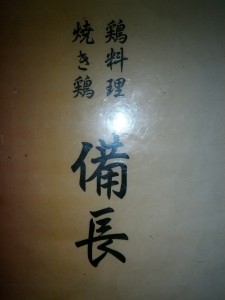 鶏料理
焼き鶏
備長